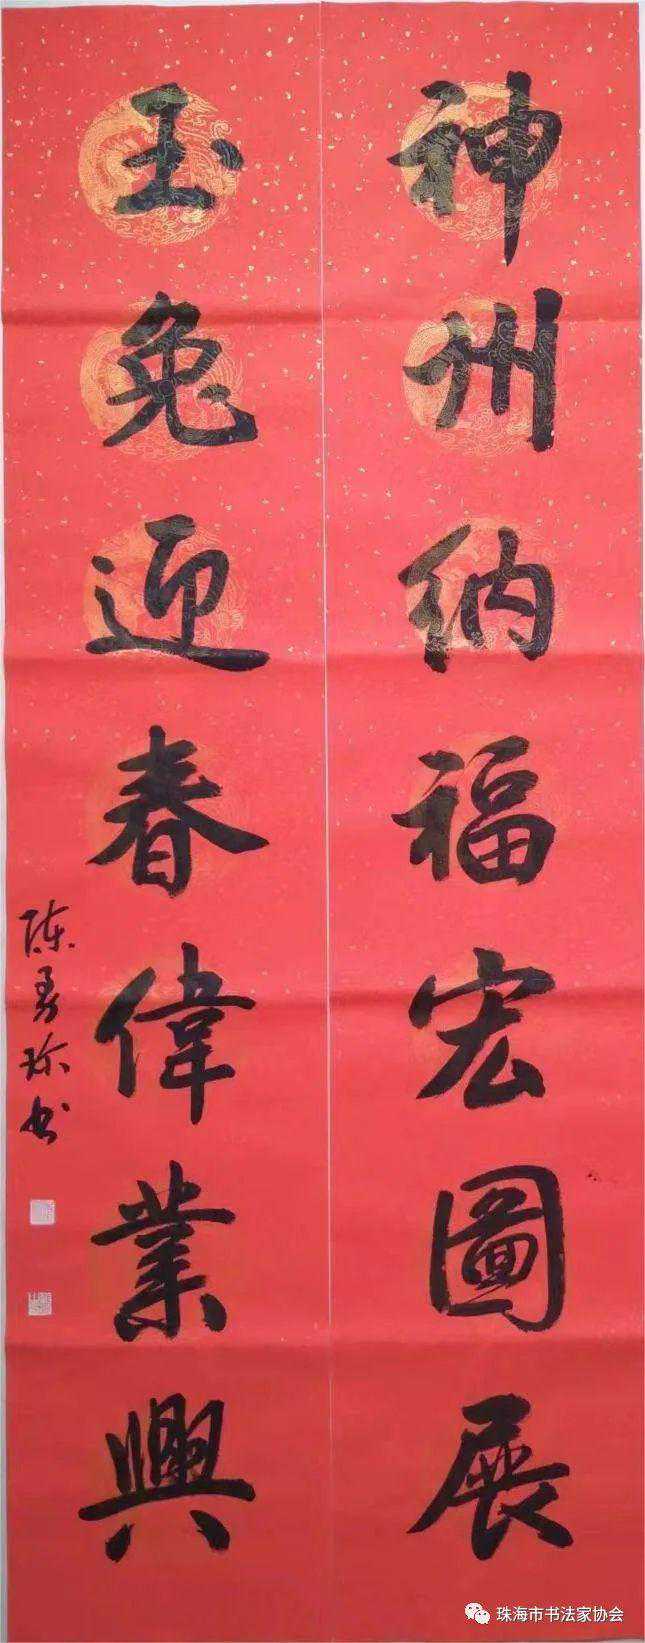 神州納福宏圖展
玉兔迎春偉業興
陈勇珍书
珠海市书法家协会